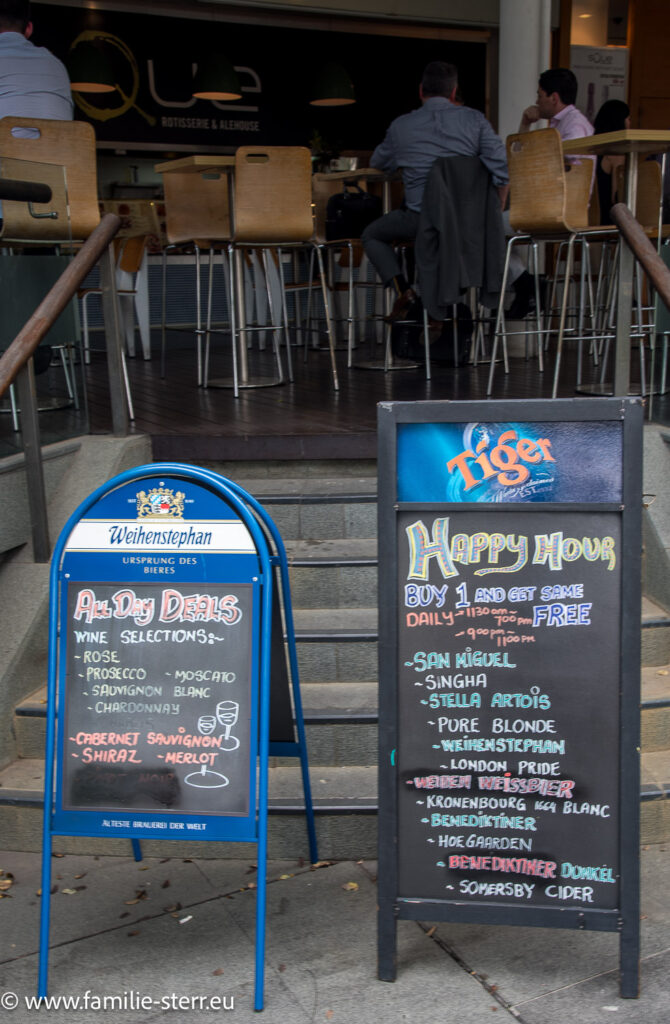 Que
ROTISSERIE & ALEHOUSE
QUE
Weihenstephan
URSPRUNG DES
BIERES
ALL DAY DEALS
WINE SELECTIONS:~
~ ROSE
~ PROSECCO ~ MOSCATO
~ SAUVIGNON BLANC
~ CHARDONNAY
~ CABERNET SAUVIGNON
~ SHIRAZ ~ MERLOT
ÄLTESTE BRAUEREI DER WELT
Tiger
EST.
HAPPY HOUR
BUY 1 AND GET SAME
FREE
DAILY ~ 1130am~
700pm
~ 900pm ~
1100pm
~ SAN MIGUEL
~ SINGHA
~ STELLA ARTOIS
~ PURE BLONDE
~ WEIHENSTEPHAN
~ LONDON PRIDE
~ WEIHEN WEISSBIER
~ KRONENBOURG 1664 BLANC
~ BENEDIKTINER
~ HOEGAARDEN
~ BENEDIKTINER DUNKEL
~ SOMERSBY CIDER
© www.familie-sterr.eu